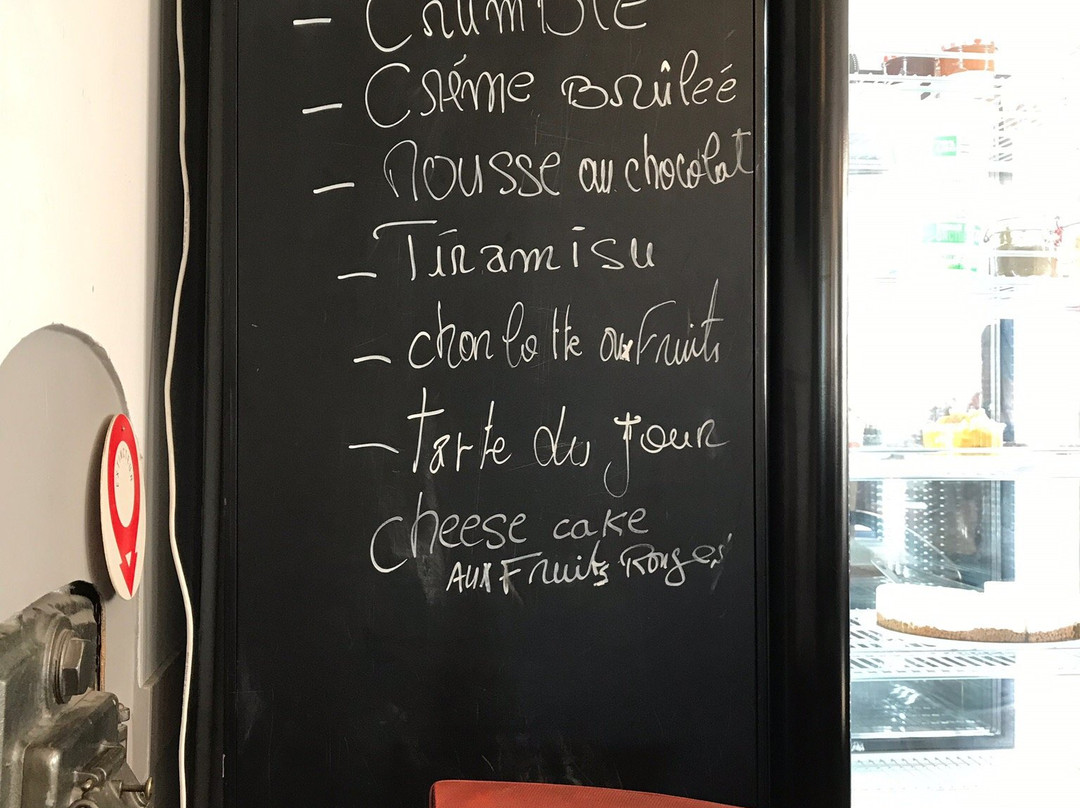 - Crumble
- Créme Brûleé
- Mousse au chocolat
- Tiramisu
- charlotte aux Fruits
- Tarte du jour
cheese cake
aux Fruits Rouges